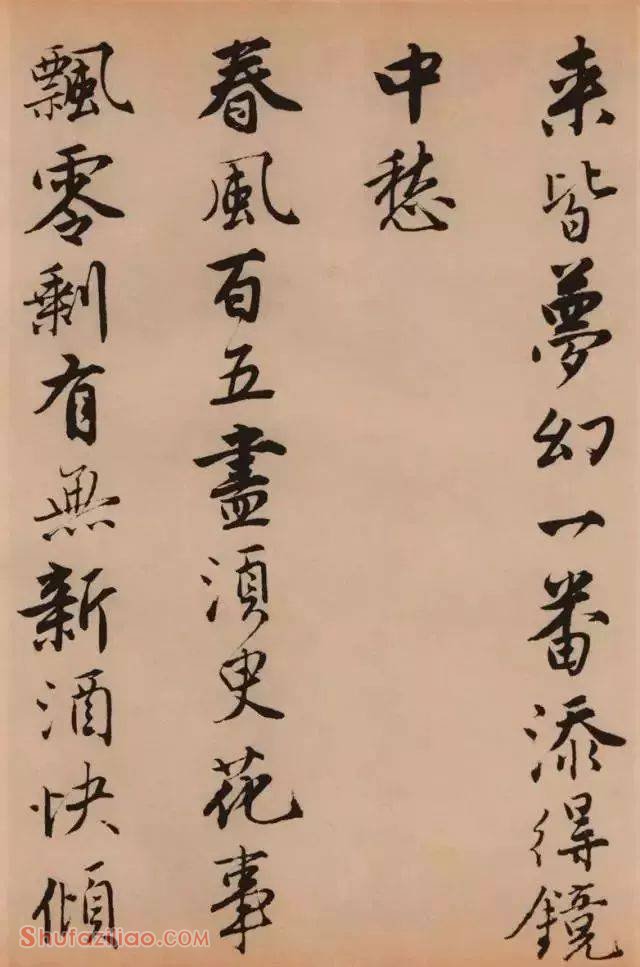 来皆夢幻一番添得鏡
中愁
春風百五盡須臾花事
飄零剩有無新酒快傾
Shufazijiao.com